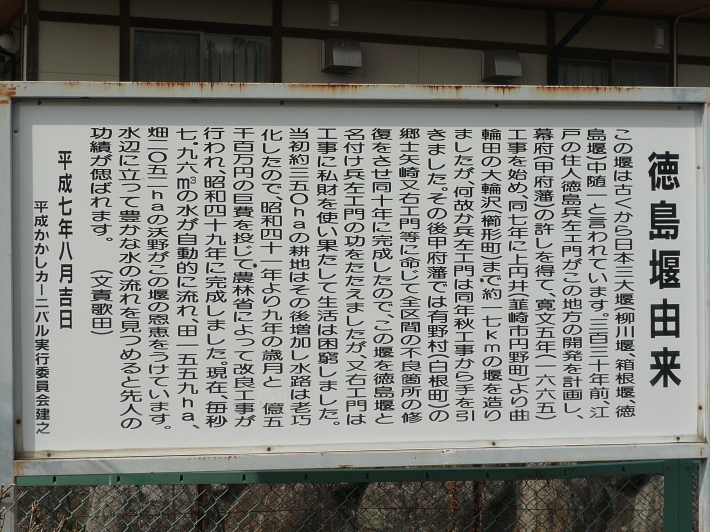 徳島堰由来
この堰は古くから日本三大堰(柳川堰、箱根堰、徳
島堰)中随一と言われています。三百三十年前、江
戸の住人徳島兵左エ門がこの地方の開発を計画し、
幕府(甲府藩)の許しを得て、寛文五年(一六六五)
工事を始め、同七年に上円井(韮崎市円野町)より曲
輪田の大輪沢(櫛形町)まで約一七kmの堰を造り
ましたが、何故か兵左エ門は同年秋工事から手を引
きました。その後甲府藩では有野村(白根町)の
郷士矢崎又右エ門等に命じて全区間の不良箇所の修
復をさせ同十年に完成したので、この堰を徳島堰と
名付け兵左エ門の功をたたえましたが、又右エ門は
工事に私財を使い果たして生活は困窮しました。
当初約三五〇haの耕地はその後増加し水路は老巧
化したので、昭和四十一年より九年の歳月と 億五
千百万円の巨費を投じて、農林省によって改良工事が
行われ、昭和四十九年に完成しました。現在、毎秒
七・九六m³の水が自動的に流れ、田一五五九ha、
畑一〇五二haの沃野がこの堰の恩恵をうけています。
水辺に立って豊かな水の流れを見つめると先人の
功績が偲ばれます。 (文責歌田)
平成七年八月吉日
平成かかしカーニバル実行委員会建之